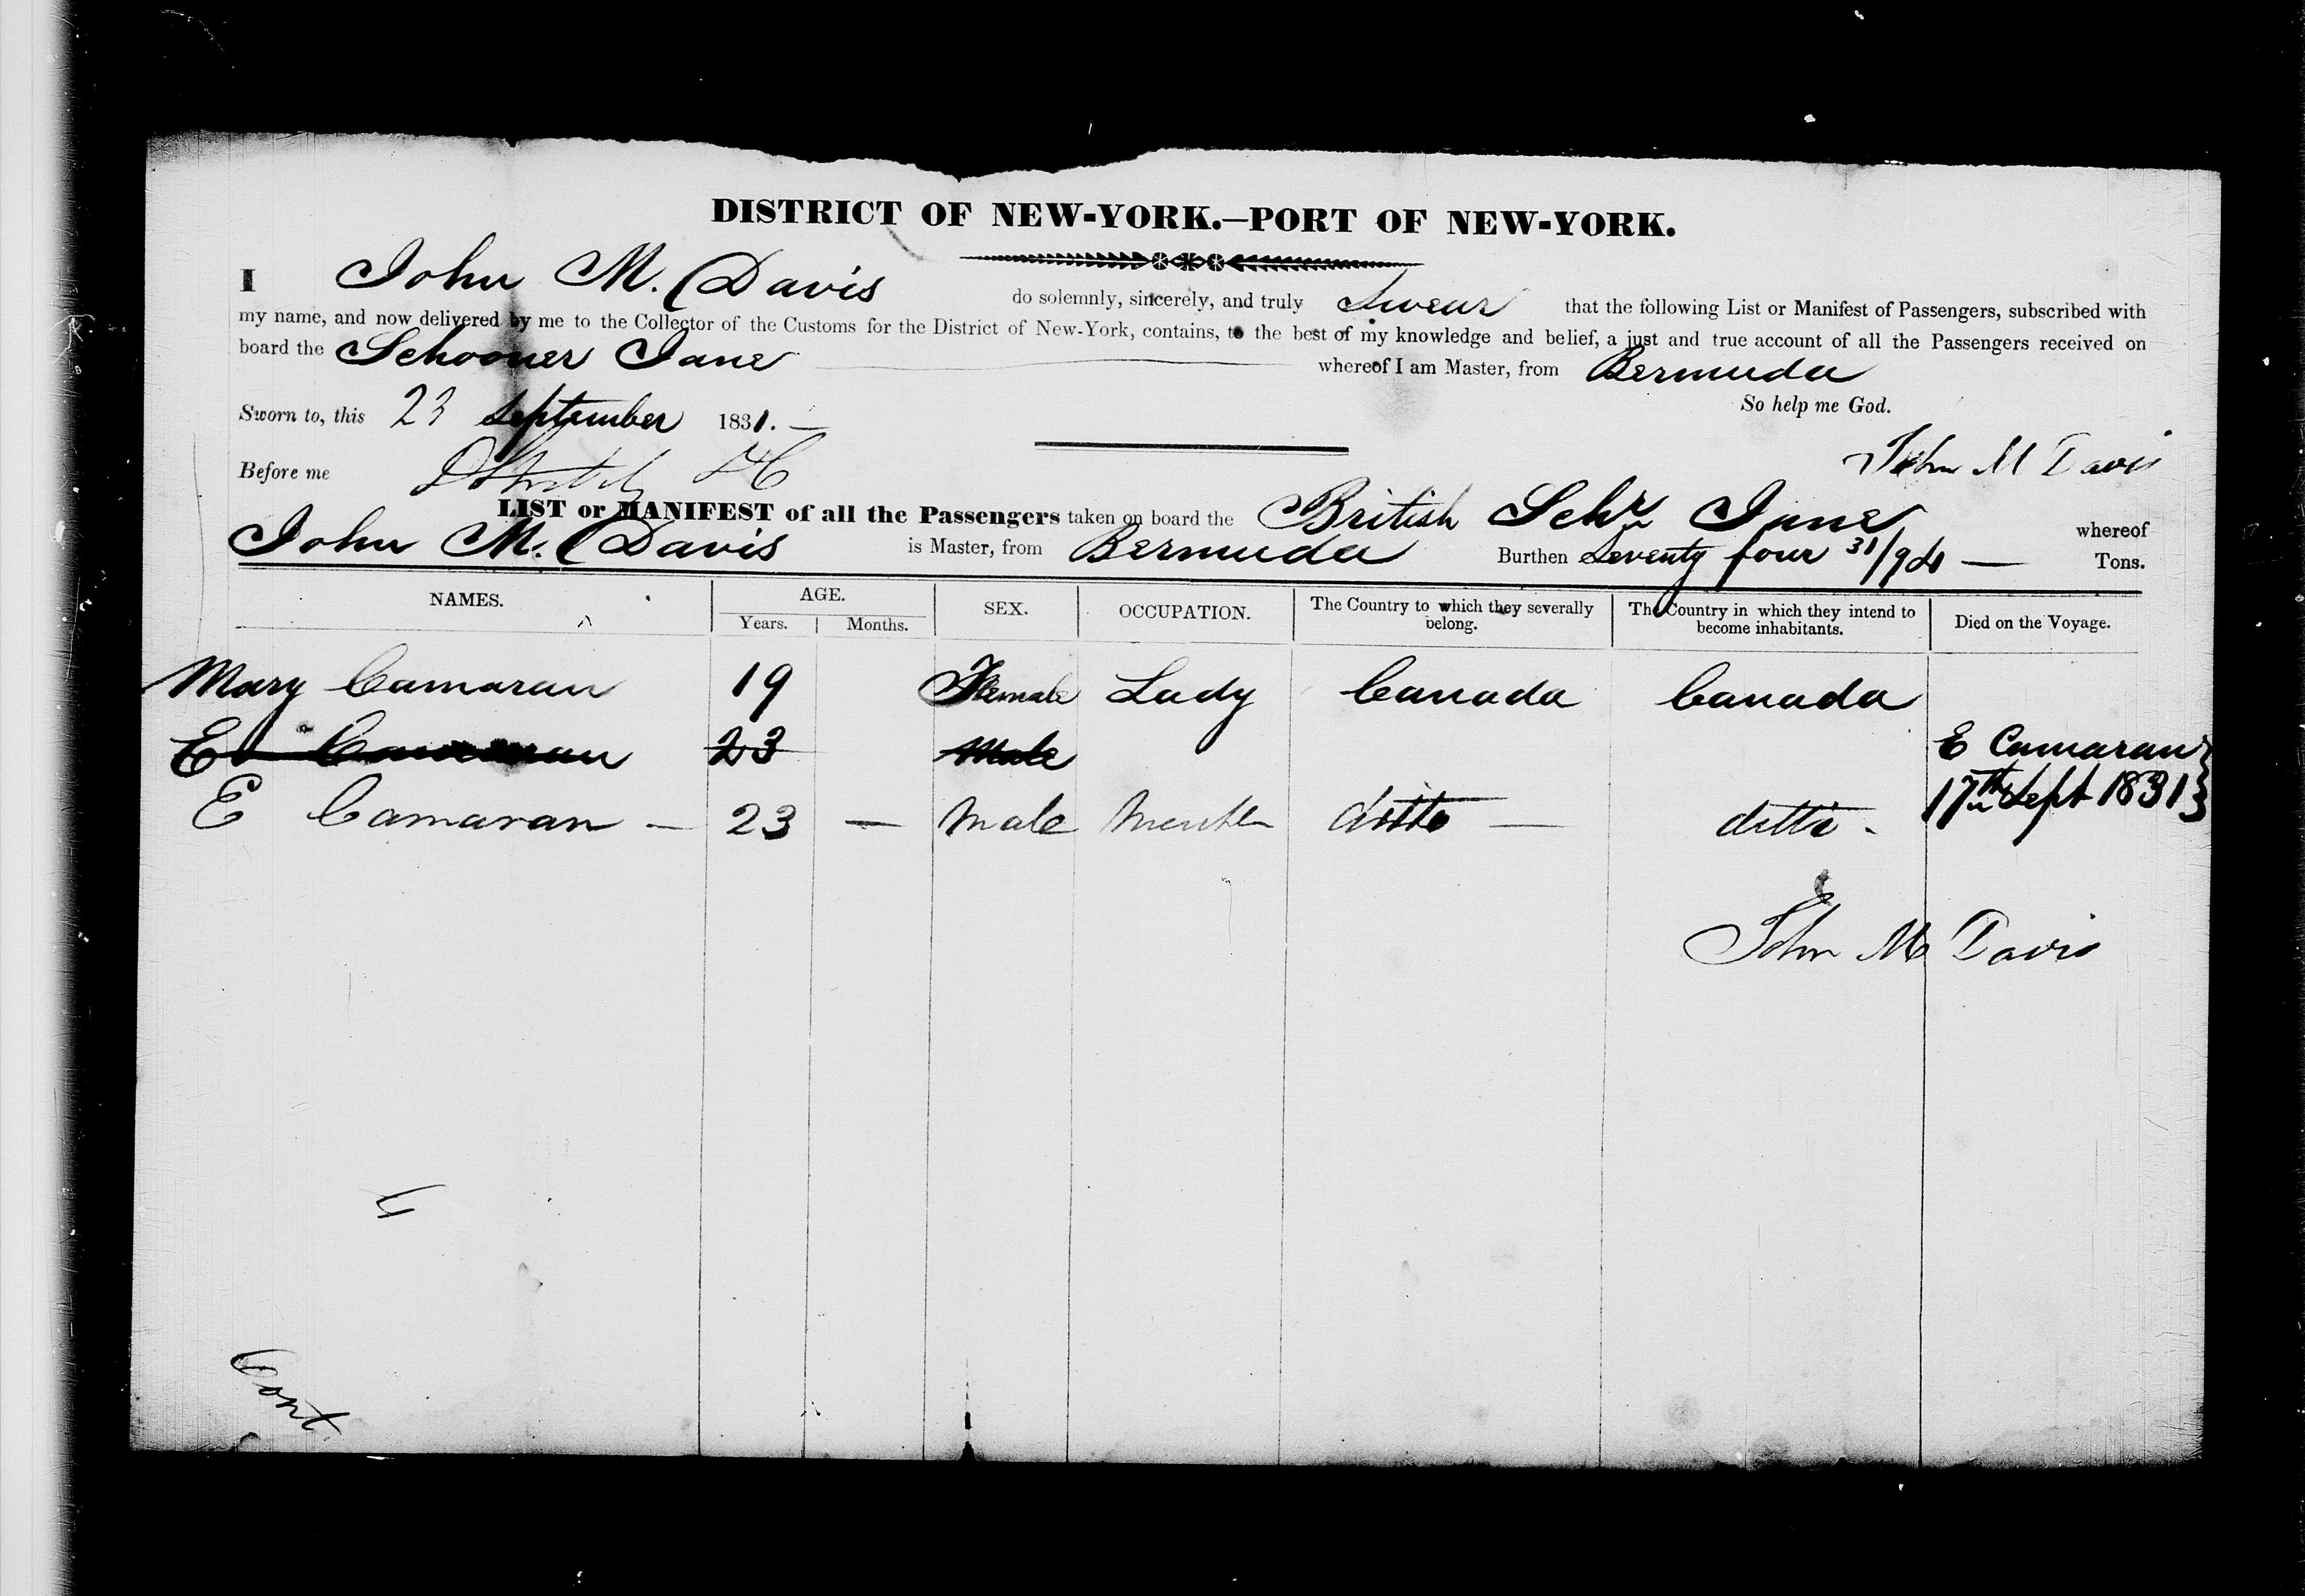 DISTRICT OF NEW-YORK.—PORT OF NEW-YORK.
I John M. Davis do solemnly, sincerely, and truly Swear that the following List or Manifest of Passengers, subscribed with
my name, and now delivered by me to the Collector of the Customs for the District of New-York, contains, to the best of my knowledge and belief, a just and true account of all the Passengers received on
board the Schooner Jane whereof I am Master, from Bermuda
So help me God.
Sworn to, this 23 September 1831.—
John M Davis
Before me
LIST or MANIFEST of all the Passengers taken on board the British Schr Jane whereof
John M. Davis is Master, from Bermuda Burthen Seventy four 31/94 — Tons.
NAMES. AGE. Years. Months. SEX. OCCUPATION. The Country to which they severally belong. The Country in which they intend to become inhabitants. Died on the Voyage.
Mary Camaran 19 Female Lady Canada Canada
E Camaran 23 Male E Camaran
17th Sept 1831
E Camaran — 23 — Male ditto — ditto -
John M Davis
Cont.